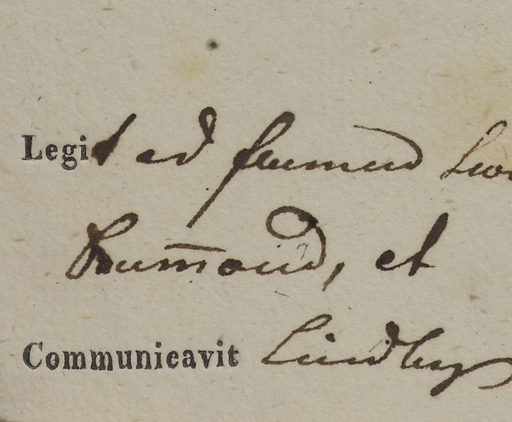 Legit ad flumen Swa
Drum̄ond, et
Communicavit Lindley